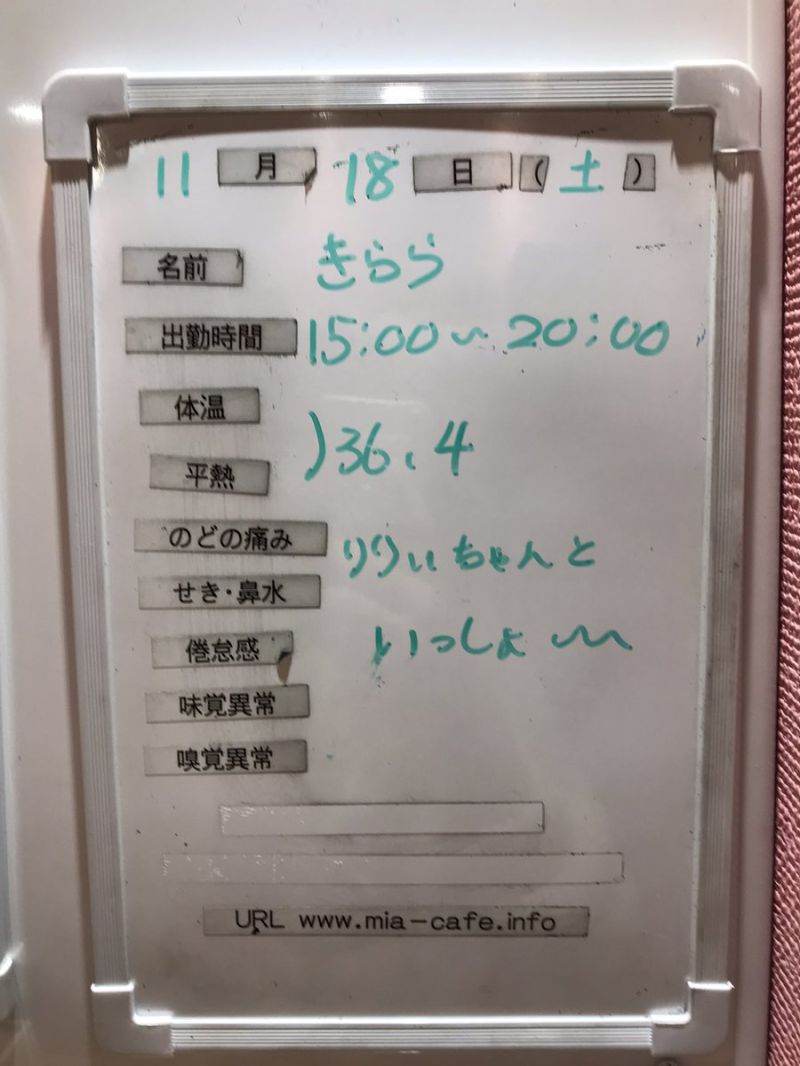 11月18日(土)
名前 きらら
出勤時間 15:00〜20:00
体温
平熱 )36.4
のどの痛み りりぃちゃんと
せき・鼻水
倦怠感 いっしょ〜
味覚異常
嗅覚異常
URL www.mia-cafe.info